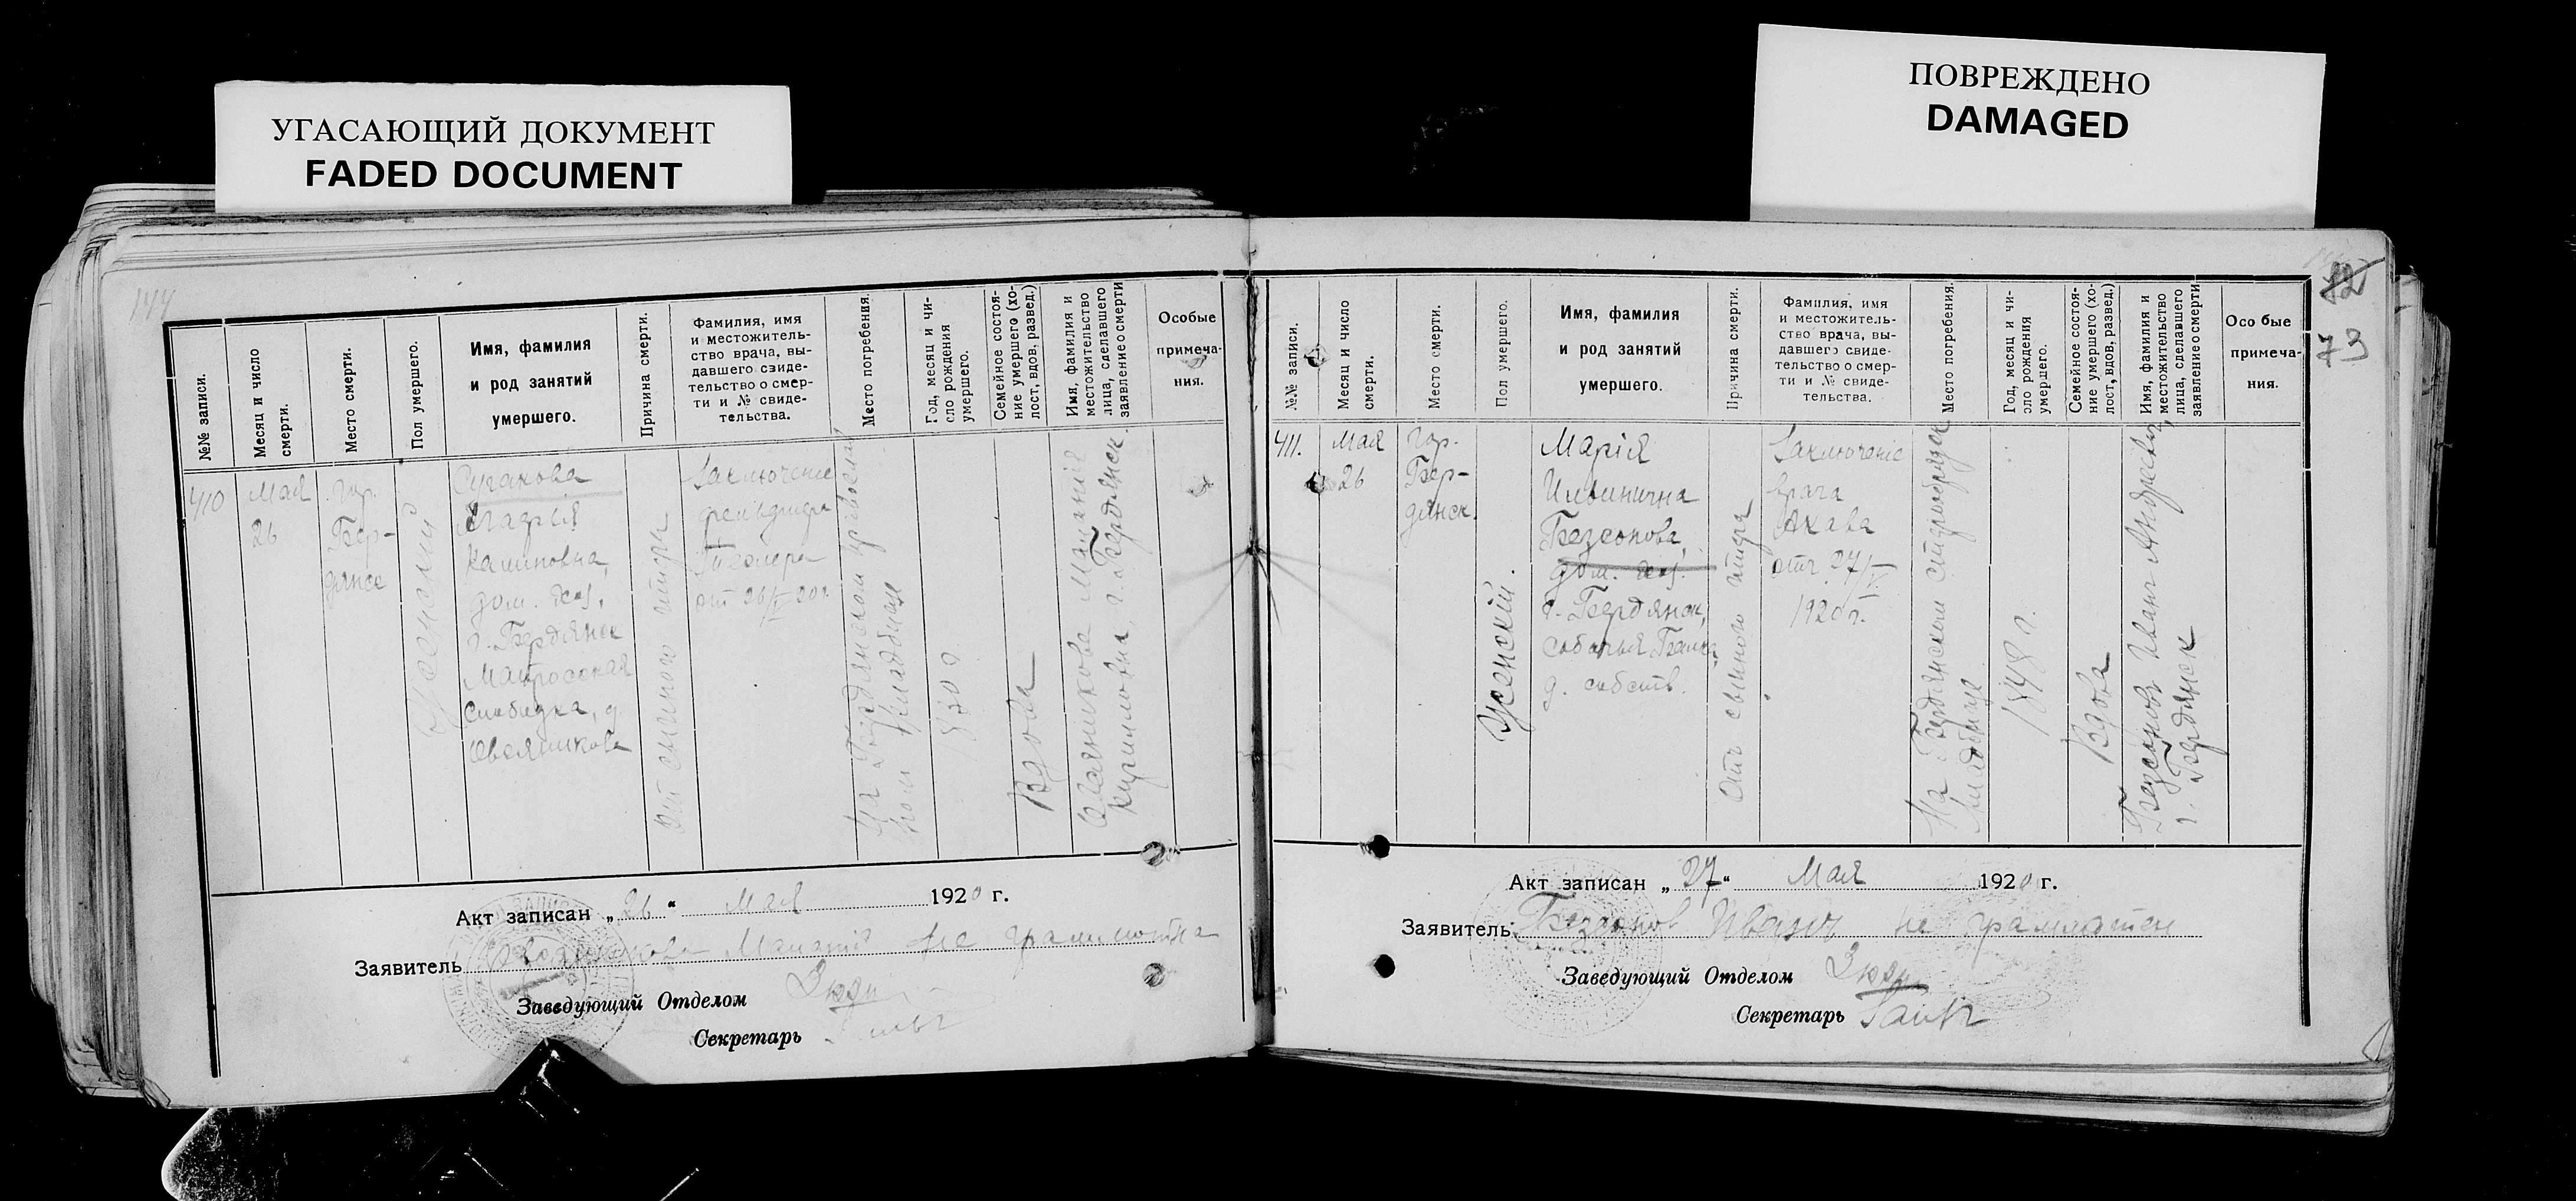 УГАСАЮЩИЙ ДОКУМЕНТ
FADED DOCUMENT
ПОВРЕЖДЕНО
DAMAGED
144
№№ записи.
Месяц и число
смерти.
Место смерти.
Пол умершего.
Имя, фамилия
и род занятий
умершего.
Причина смерти.
Фамилия, имя
и местожитель-
ство врача, вы-
давшего свиде-
тельство о смер-
ти и № свиде-
тельства.
Место погребения.
Год, месяц и чи-
сло рождения
умершего.
Семейное состоя-
ние умершего (хо-
лост, вдов, развед.)
Имя, фамилия и
местожительство
лица, сделавшего
заявление о смерти
Особые
примеча-
ния.
410
Мая
26
гор.
Бер-
дянск
Женский
Сугакова
Агафья
Калиновна,
дом. хоз.
г. Бердянск
Матросская
Слободка, д.
Овсянникова
От сыпного тифа
Заключение
фельдшера
от 26/V 20 г.
На Бердянском православ
ном кладбище
Вдова
Овсянникова Мелания
Кирилловна, г. Бердянск.
Акт записан „26“ Мая 1920 г.
Заявитель Овсянникова Мелания не грамотна
Заведующий Отделом
Секретарь
73
№№ записи.
Месяц и число
смерти.
Место смерти.
Пол умершего.
Имя, фамилия
и род занятий
умершего.
Причина смерти.
Фамилия, имя
и местожитель-
ство врача, вы-
давшего свиде-
тельство о смер-
ти и № свиде-
тельства.
Место погребения.
Год, месяц и чи-
сло рождения
умершего.
Семейное состоя-
ние умершего (хо-
лост, вдов, развед.)
Имя, фамилия и
местожительство
лица, сделавшего
заявление о смерти
Особые
примеча-
ния.
411.
Мая
26
гор.
Бер-
дянск.
Женскій.
Марія
Ильинична
Безсонова,
дом. хоз.
г. Бердянск,
Собачья Балка
д. собств.
Отъ сыпного тифа
Заключеніе
врача
Ахава
отъ 27/V
1920 г.
На Бердянском старообрядч.
кладбище
1848 г.
Вдова
Безсоновъ Иванъ Андреевич,
г. Бердянск
Акт записан „27“ Мая 1920 г.
Заявитель: Безсонов Иванъ не грамотен
Заведующий Отделом
Секретарь